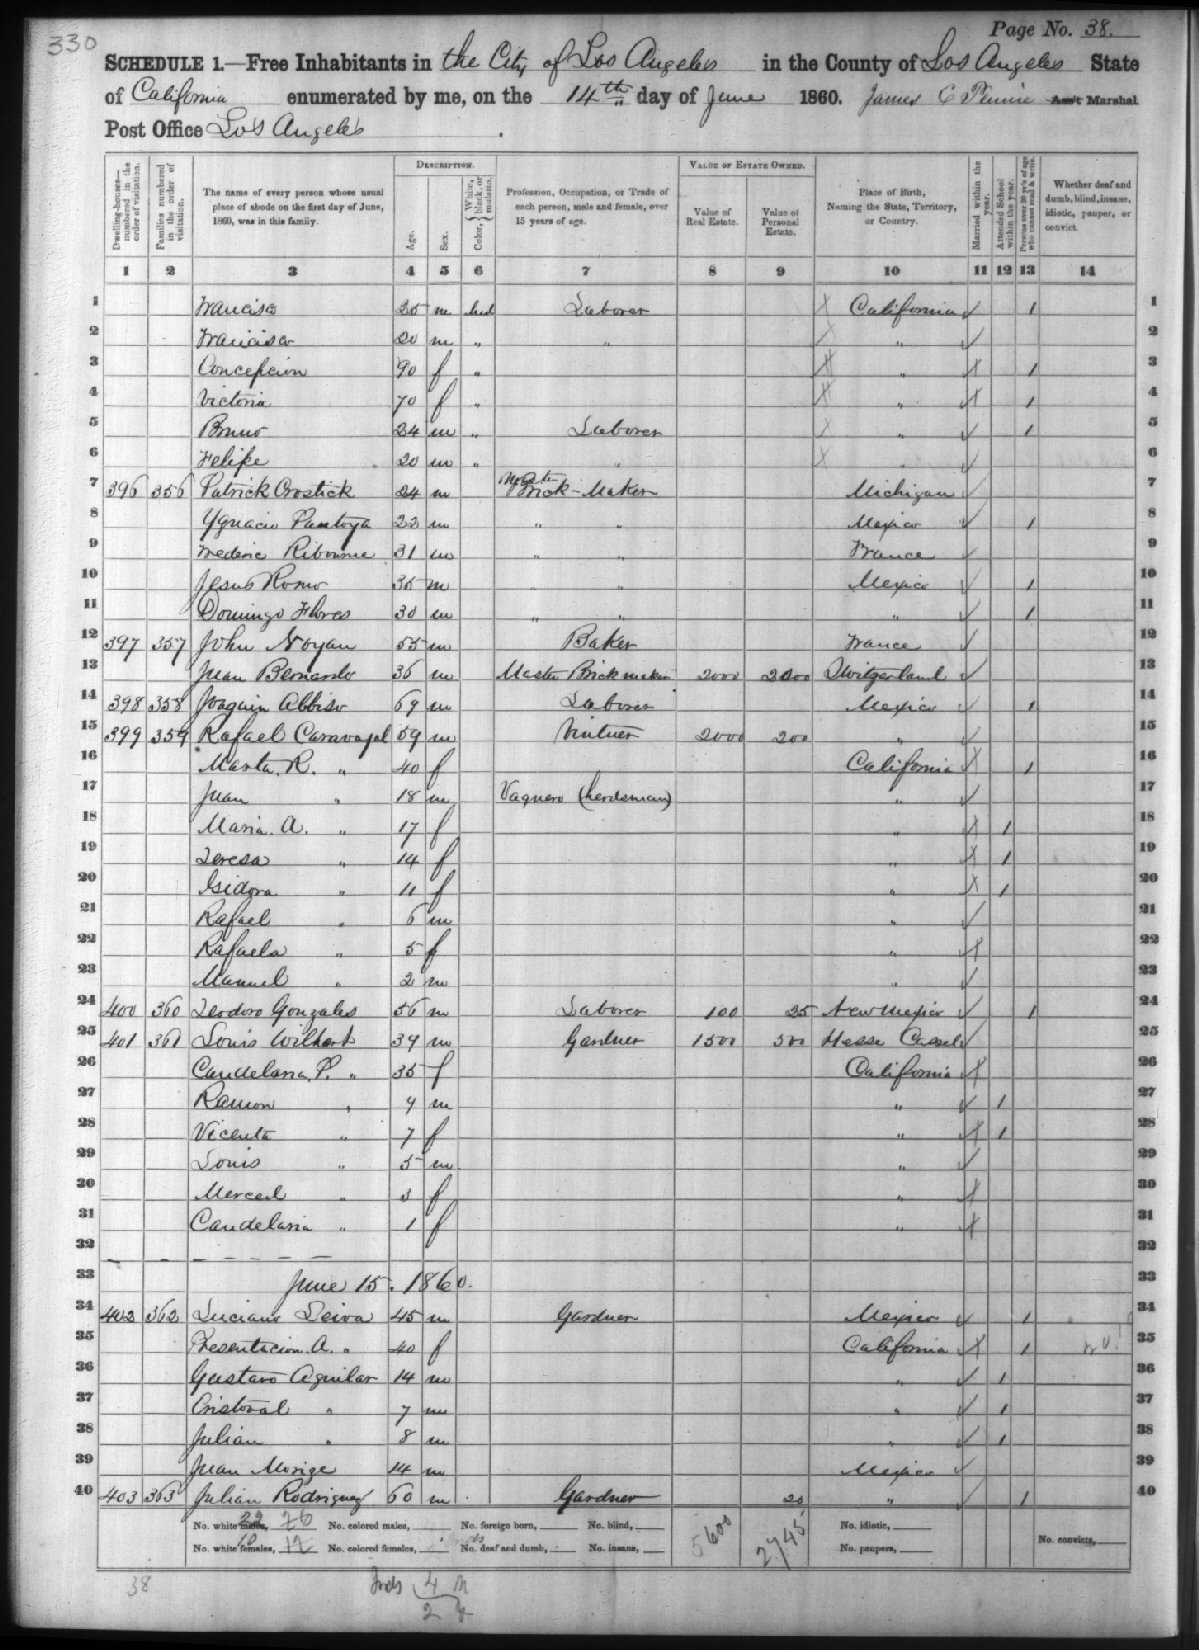 330
Page No. 38.
SCHEDULE 1.—Free Inhabitants in the City of Los Angeles in the County of Los Angeles State
of California enumerated by me, on the 14th day of June 1860. James C Pennie Ass't Marshal
Post Office Los Angeles .
Dwelling-houses—numbered in the order of visitation. Families numbered in the order of visitation. The name of every person whose usual place of abode on the first day of June, 1860, was in this family. DESCRIPTION. Age. Sex. Color, White, black, or mulatto. Profession, Occupation, or Trade of each person, male and female, over 15 years of age. VALUE OF ESTATE OWNED. Value of Real Estate. Value of Personal Estate. Place of Birth, Naming the State, Territory, or Country. Married within the year. Attended School within the year. Persons over 20 y'rs of age who cannot read & write. Whether deaf and dumb, blind, insane, idiotic, pauper, or convict.
1 2 3 4 5 6 7 8 9 10 11 12 13 14
1 Francisco 25 m Ind Laborer California 1 1
2 Francisco 20 m " " " 2
3 Concepcion 90 f " " 1 3
4 Victoria 70 f " " 1 4
5 Bruno 24 m " Laborer " 1 5
6 Felipe 20 m " " " 6
7 396 356 Patrick Crostick 24 m Master Brick-Maker Michigan 7
8 Ygnacio Pantoya 22 m " " Mexico 1 8
9 Frederic Ribourne 31 m " " France 9
10 Jesus Romo 35 m " " Mexico 1 10
11 Domingo Flores 30 m " " " 1 11
12 397 357 John Noyan 55 m Baker France 12
13 Juan Bernardo 36 m Master Brick maker 2000 2000 Switzerland 13
14 398 358 Joaquin Abbiso 69 m Laborer Mexico 1 14
15 399 359 Rafael Caravajal 59 m Vintner 2000 200 " 15
16 Marta. R. " 40 f California 1 16
17 Juan " 18 m Vaquero (herdsman) " 17
18 Maria. A. " 17 f " 1 18
19 Teresa " 14 f " 1 19
20 Isidora " 11 f " 1 20
21 Rafael " 6 m " 21
22 Rafaela " 5 f " 22
23 Manuel " 2 m " 23
24 400 360 Teodoro Gonzales 56 m Laborer 100 25 New Mexico 1 24
25 401 361 Louis Wilhart 39 m Gardner 1500 500 Hesse Cassel 25
26 Candelaria. P. " 35 f California 26
27 Ramon " 9 m " 1 27
28 Vicenta " 7 f " 1 28
29 Louis " 5 m " 29
30 Merced " 3 f " 30
31 Candelaria " 1 f " 31
32 32
33 June 15. 1860. 33
34 402 362 Luciano Leiva 45 m Gardner Mexico 1 34
35 Presentacion. A. " 40 f California 1 35
36 Gustavo Aguilar 14 m " 1 36
37 Cristoval " 7 m " 1 37
38 Julian " 8 m " 1 38
39 Juan Monge 14 m Mexico 39
40 403 363 Julian Rodriguez 60 m Gardner 20 " 1 40
No. white males, 22 26 No. colored males, No. foreign born, No. blind, 5600 2745 No. idiotic,
No. white females, 10 12 No. colored females, No. deaf and dumb, No. insane, No. paupers, No. convicts,
38 Inds 4 m
2 f